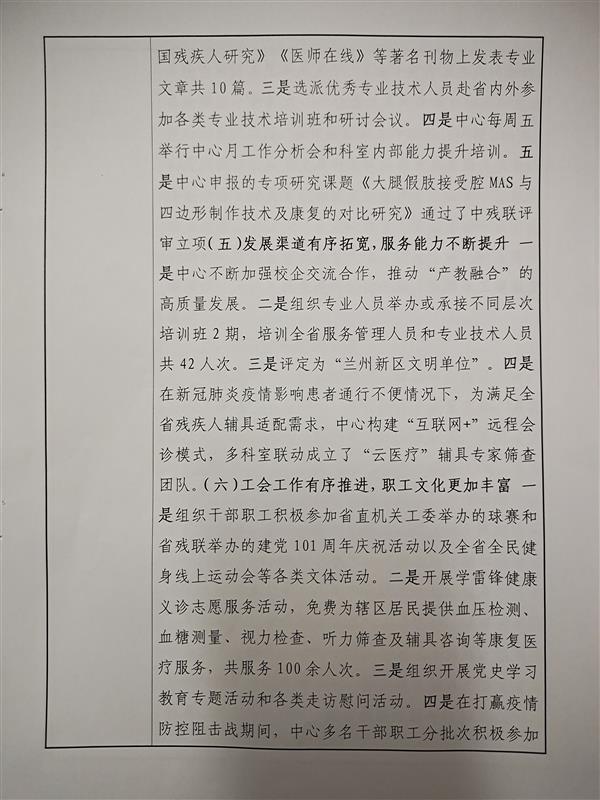 国残疾人研究》《医师在线》等著名刊物上发表专业
文章共 10 篇。三是选派优秀专业技术人员赴省内外参
加各类专业技术培训班和研讨会议。四是中心每周五
举行中心月工作分析会和科室内部能力提升培训。五
是中心申报的专项研究课题《大腿假肢接受腔 MAS 与
四边形制作技术及康复的对比研究》通过了中残联评
审立项(五)发展渠道有序拓宽,服务能力不断提升 一
是中心不断加强校企交流合作，推动“产教融合”的
高质量发展。二是组织专业人员举办或承接不同层次
培训班 2 期，培训全省服务管理人员和专业技术人员
共 42 人次。三是评定为“兰州新区文明单位”。四是
在新冠肺炎疫情影响患者通行不便情况下，为满足全
省残疾人辅具适配需求，中心构建“互联网+”远程会
诊模式，多科室联动成立了“云医疗”辅具专家筛查
团队。(六)工会工作有序推进,职工文化更加丰富 一
是组织干部职工积极参加省直机关工委举办的球赛和
省残联举办的建党 101 周年庆祝活动以及全省全民健
身线上运动会等各类文体活动。二是开展学雷锋健康
义诊志愿服务活动，免费为辖区居民提供血压检测、
血糖测量、视力检查、听力筛查及辅具咨询等康复医
疗服务，共服务 100 余人次。三是组织开展党史学习
教育专题活动和各类走访慰问活动。四是在打赢疫情
防控阻击战期间，中心多名干部职工分批次积极参加